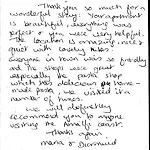 Thank you so much for a
wonderful stay. Your apartment
is beautiful, everything was
perfect & you were very helpful.
The location is amazing, nice &
quiet with lovely views
Everyone in town was so friendly
and the shops were great
especially the pasta shop
which has delicious home-
made pasta, we visited it a
number of times.
We will definitely
recommend you to anyone
visiting the Amalfi coast.
Thanks again
Maria & Diarmuid